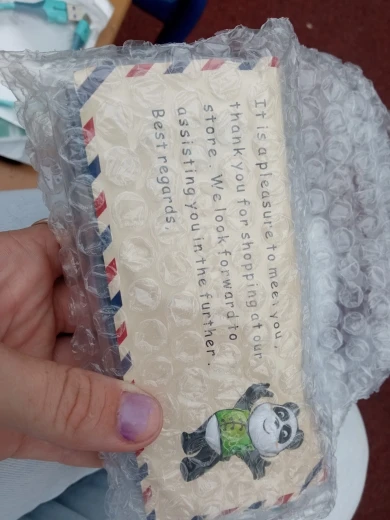 It is a pleasure to meet you,
thank you for shopping at our
store. We look forward to
assisting you in the further.
Best regards.